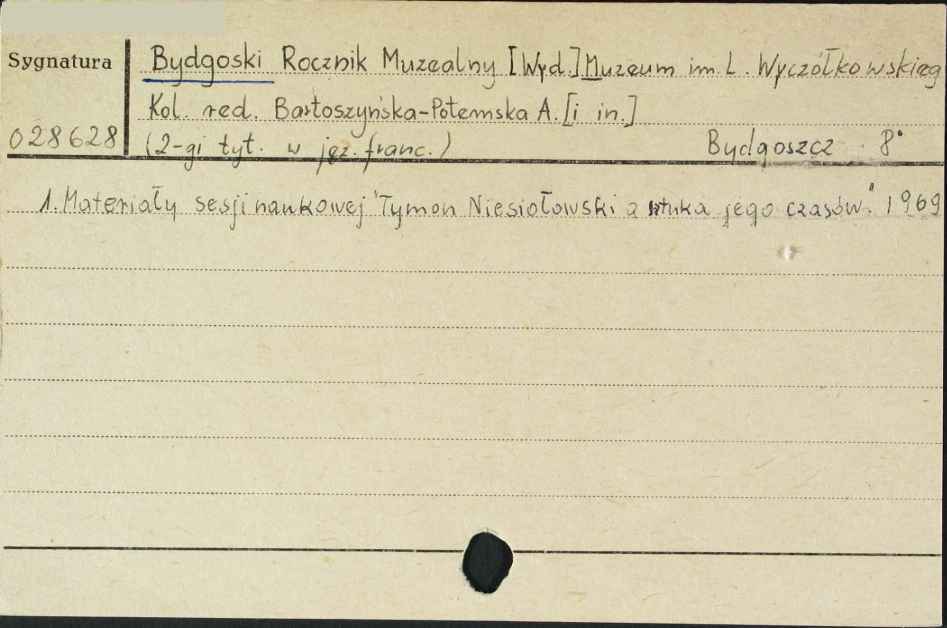 Sygnatura
028628
Bydgoski Rocznik Muzealny [Wyd.] Muzeum im. L. Wyczółkowskieg
Kol. red. Bartoszyńska-Potemska A. [i in.]
(2-gi tyt. w jęz. franc.) Bydgoszcz 8°
1. Materiały sesji naukowej "Tymon Niesiołowski a sztuka jego czasów". 1969